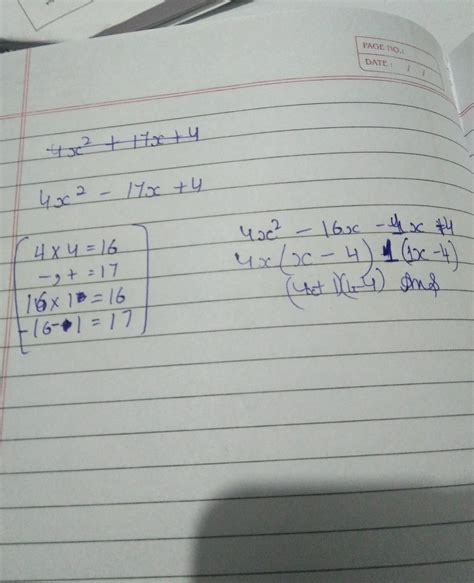 PAGE NO.:
DATE: / /
4x² + 17x + 4
4x² - 17x + 4
4 x 4 = 16
-, + = 17
16 x 1 = 16
-16 - 1 = 17
4x² - 16x - 1x + 4
4x (x - 4) 1 (1x - 4)
Ans